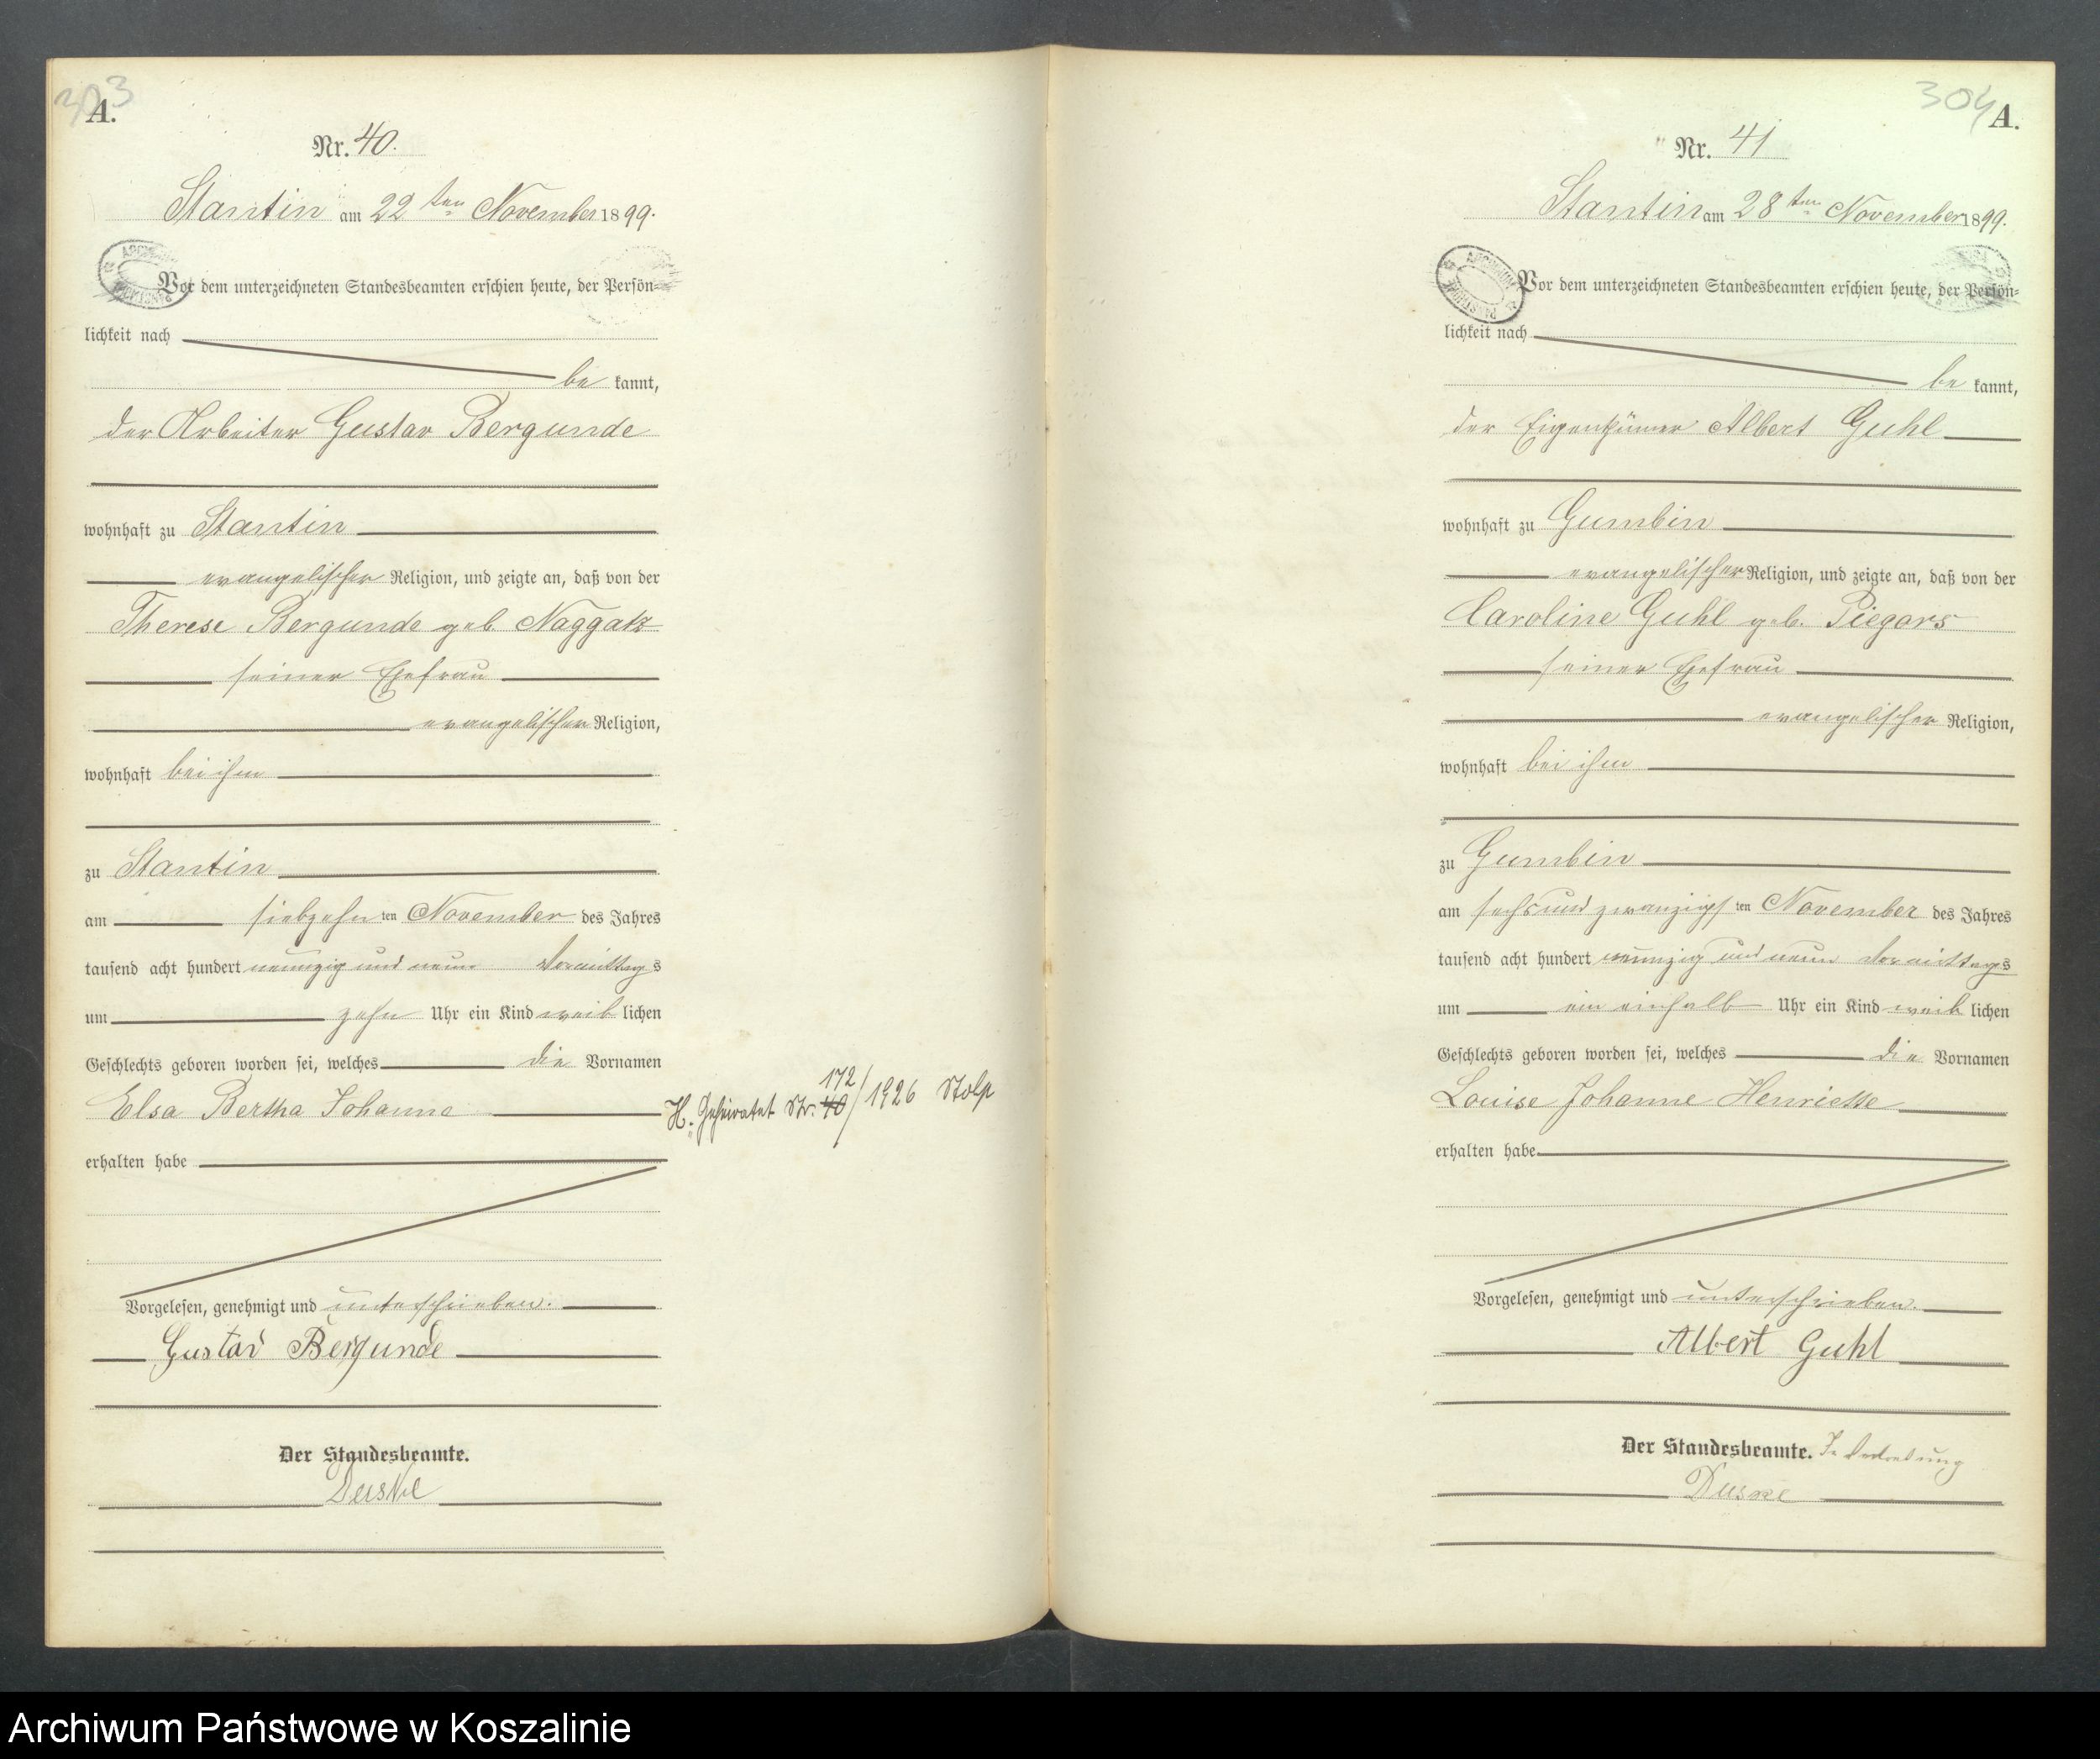 303
A.
Nr. 40.
Stantin am 22ten November 1899.
Vor dem unterzeichneten Standesbeamten erschien heute, der Persön-
lichkeit nach
be kannt,
der Arbeiter Gustav Bergunde
wohnhaft zu Stantin
evangelischer Religion, und zeigte an, daß von der
Therese Bergunde geb. Naggatz
seiner Ehefrau
evangelischer Religion,
wohnhaft bei ihm
zu Stantin
am siebzehn ten November des Jahres
tausend acht hundert neunzig und neun Vormittags
um zehn Uhr ein Kind weib lichen
Geschlechts geboren worden sei, welches die Vornamen
Elsa Bertha Johanna
H. Geheiratet Nr. 40 172/1926 Stolp
erhalten habe
Vorgelesen, genehmigt und unterschrieben.
Gustav Bergunde
Der Standesbeamte.
304
A.
Nr. 41
Stantin am 28ten November 1899.
Vor dem unterzeichneten Standesbeamten erschien heute, der Persön-
lichkeit nach
be kannt,
der Eigenthümer Albert Guhl
wohnhaft zu Gumbin
evangelischer Religion, und zeigte an, daß von der
Caroline Guhl geb. Piegors
seiner Ehefrau
evangelischer Religion,
wohnhaft bei ihm
zu Gumbin
am sechs und zwanzigs ten November des Jahres
tausend acht hundert neunzig und neun Vormittags
um ein einhalb Uhr ein Kind weib lichen
Geschlechts geboren worden sei, welches die Vornamen
Louise Johanne Henriette
erhalten habe
Vorgelesen, genehmigt und unterschrieben.
Albert Guhl
Der Standesbeamte. In Vertretung
Archiwum Państwowe w Koszalinie